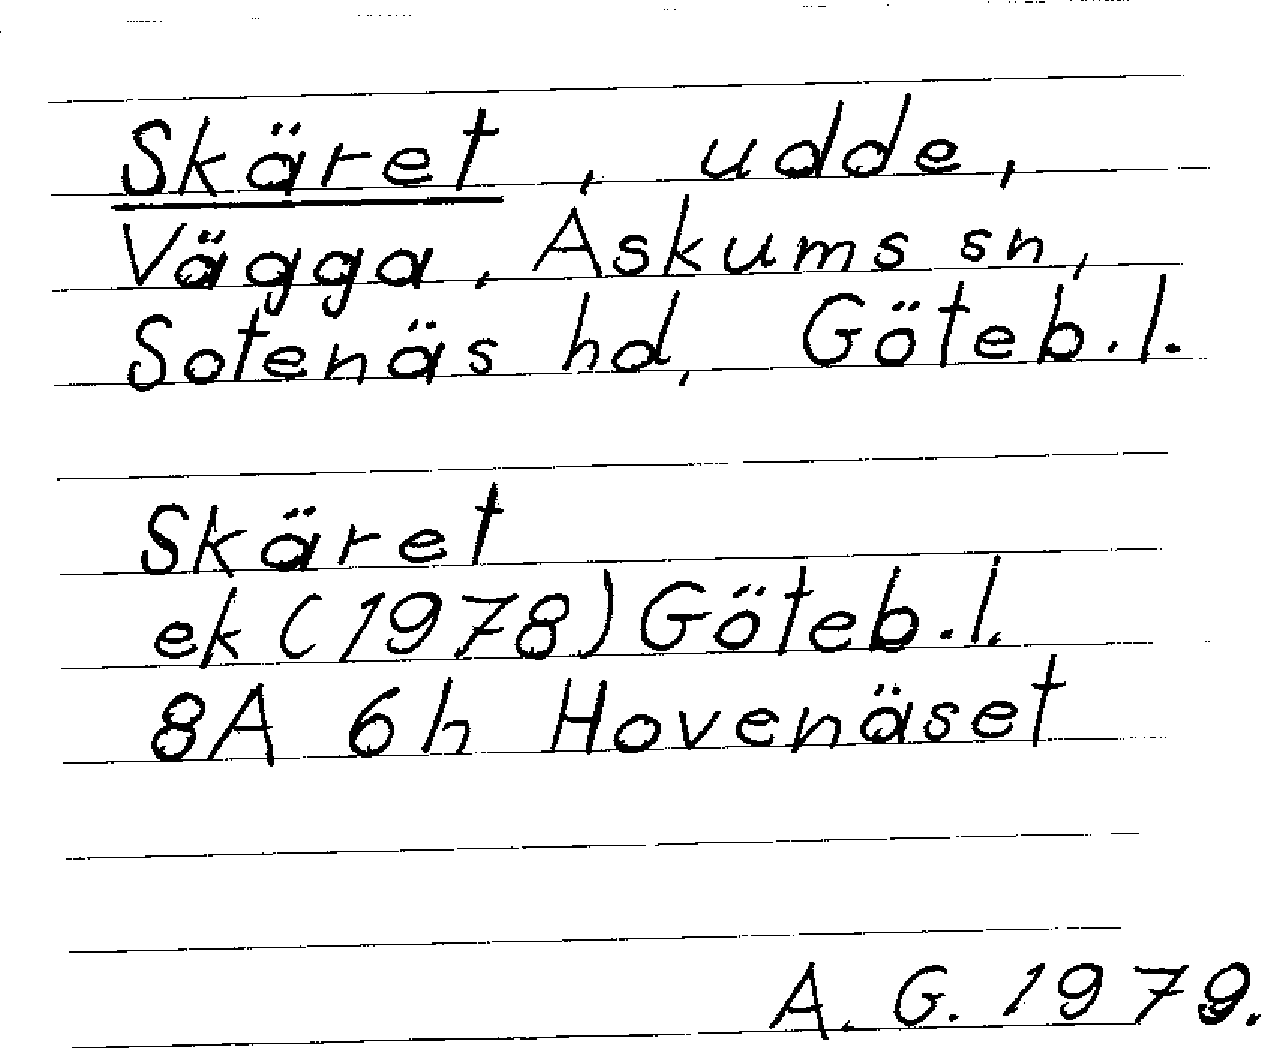 Skäret, udde,
Vägga, Askums sn,
Sotenäs hd, Göteb.l.
Skäret
ek (1978) Göteb.l.
8A 6h Hovenäset
A. G. 1979.